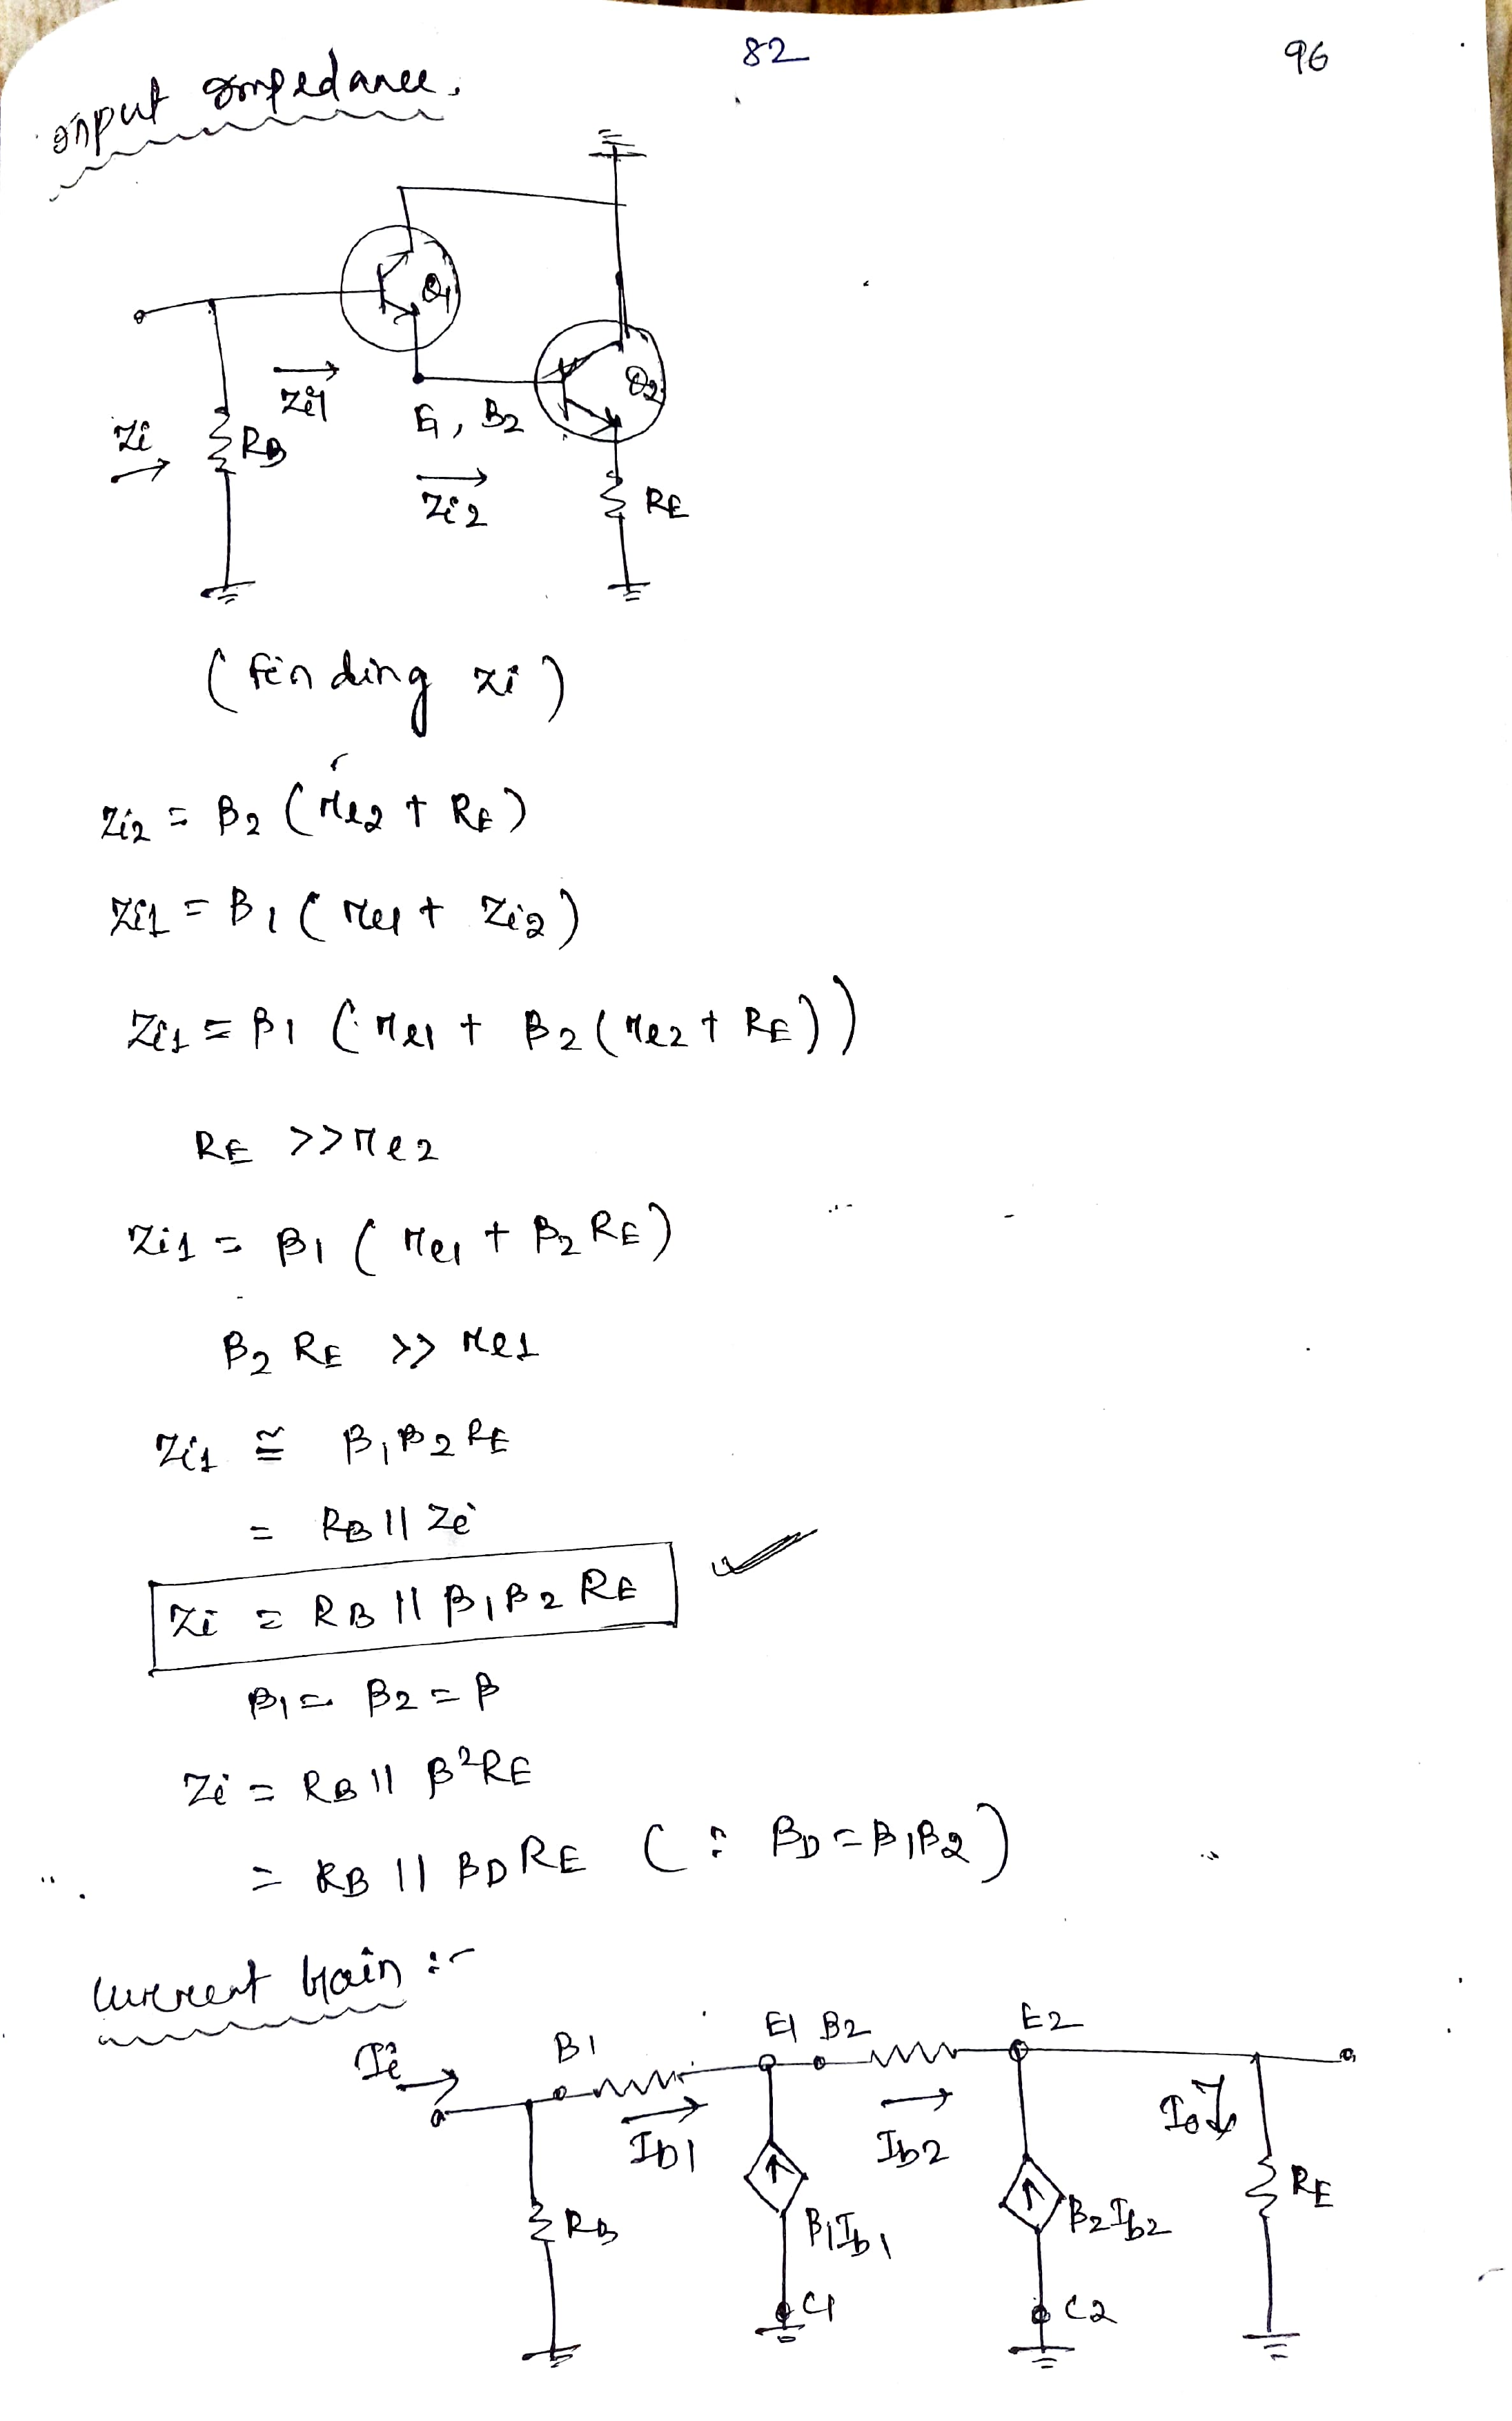 82
96
Input Impedance.
Q1
Zi1
E1, B2
Q2
Zi
RB
Zi2
RE
(finding zi)
Zi2 = β2 (re2 + RE)
Zi1 = β1 (re1 + Zi2)
Zi1 = β1 (re1 + β2 (re2 + RE))
RE >> re2
Zi1 = β1 (re1 + β2 RE)
β2 RE >> re1
Zi1 ≅ β1β2 RE
= RB || Zi
Zi = RB || β1β2 RE
β1 = β2 = β
Zi = RB || β²RE
= RB || βD RE (∵ βD = β1β2)
Current Gain :-
Ii
B1
E1 B2
E2
Ib1
Ib2
Io
RB
β1Ib1
β2Ib2
RE
C1
C2